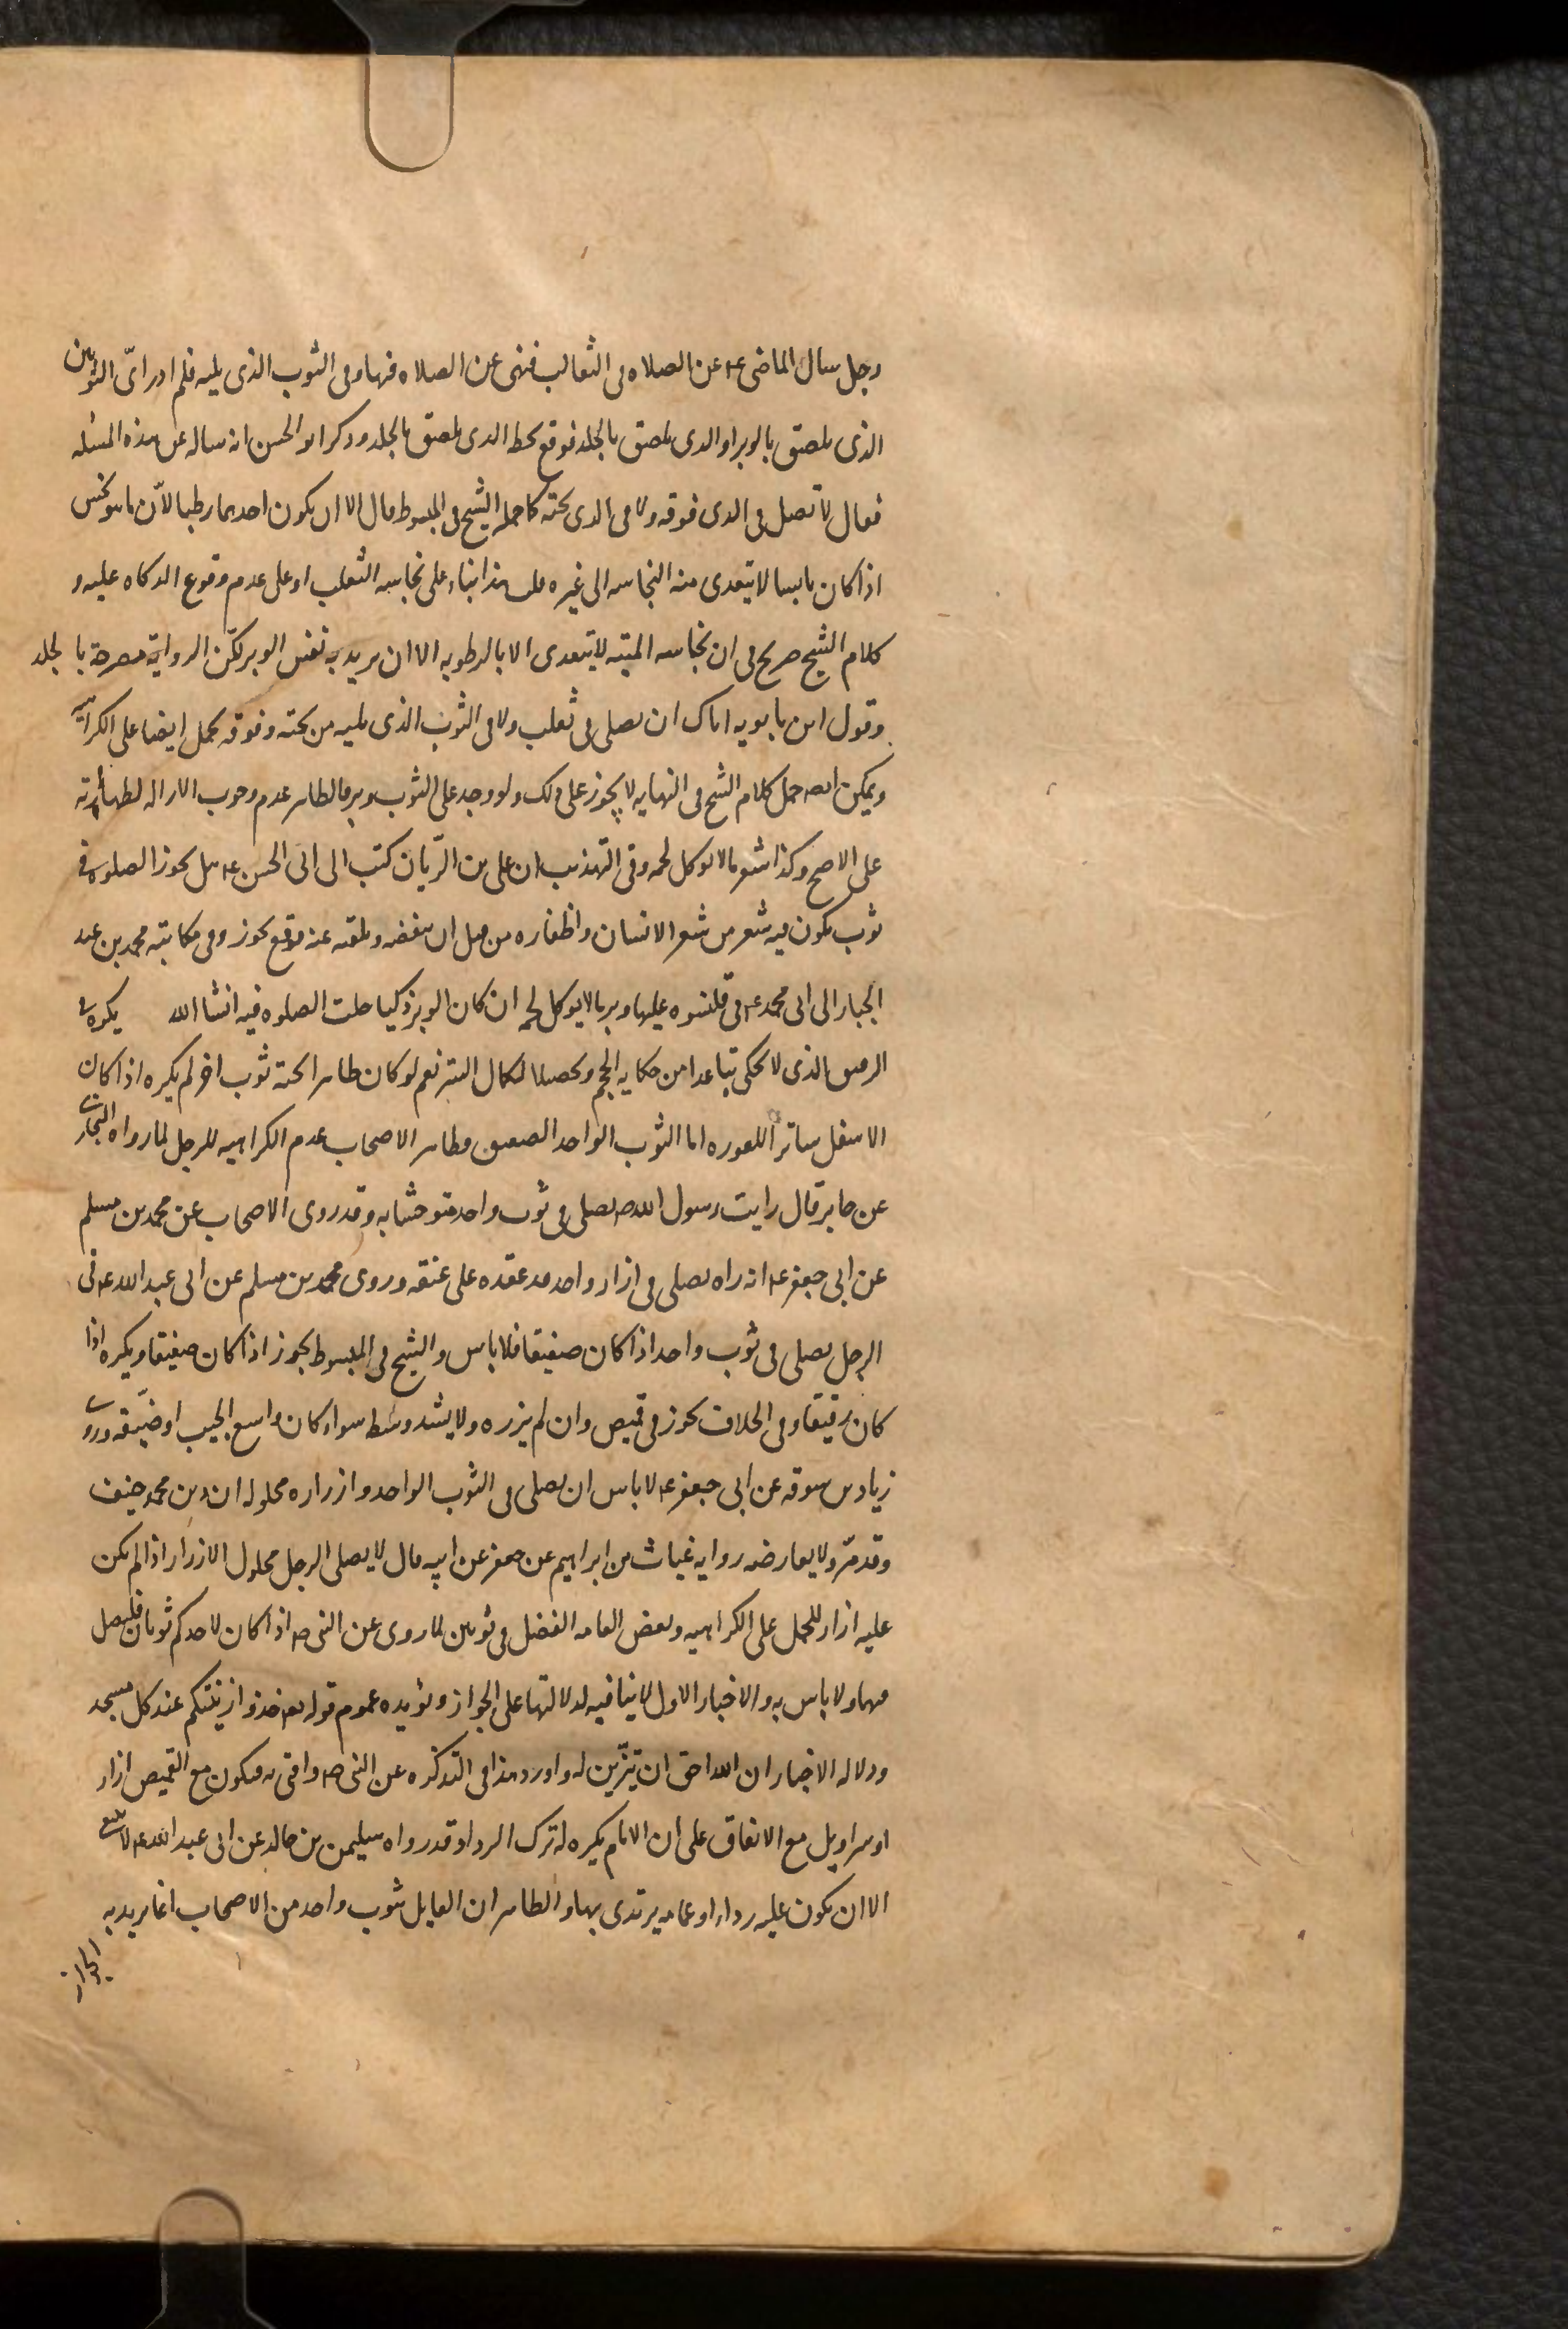 رجل سال الماضی ع عن الصلاه فی الثعالب فنهی عن الصلاه فیها و فی الثوب الذی یلیه فلم ادر ای الثوبین
الذی یلصق بالوبر او الذی یلصق بالجلد فوقع بخطه الذی یلصق بالجلد و ذکر ابو الحسن انه ساله عن هذه المسئله
فقال لا تصل فی الذی فوقه و لا فی الذی تحته کما حمله الشیخ فی المبسوط قال الا ان یکون احدهما رطبا لان ما هو نجس
اذا کان یابسا لا یتعدی منه النجاسه الی غیره قلت هذا بناء علی نجاسه الثعلب او علی عدم وقوع الذکاه علیه و
کلام الشیخ صریح فی ان نجاسه المیته لا یتعدی الا بالرطوبه الا ان یرید به نفس الوبر لکن الروایة مصرحة بالجلد
و قول ابن بابویه ایاک ان تصلی فی ثعلب و لا فی الثوب الذی یلیه من تحته و فوقه یحمل ایضا علی الکراهیه
و یمکن حمل کلام الشیخ فی النهایه لا یجوز علی ذلک و لو وجد علی الثوب وبر فالظاهر عدم وجوب الازاله لطهارته
علی الاصح و کذا شعر ما لا یوکل لحمه و فی التهذیب ان علی بن الریّان کتب الی ابی الحسن ع هل یجوز الصلوه فی
ثوب یکون فیه شعر من شعر الانسان و اظفاره من قبل ان ینفضه و یلقیه عنه فوقع یجوز و فی مکاتبه محمد بن عبد
الجبار الی ابی محمد ع فی قلنسوه علیها وبر ما لا یوکل لحمه ان کان الوبر ذکیا حلت الصلوه فیه انشا الله یکره فی
الرقیق الذی لا یحکی تباعدا من حکایه الحجم و تحصیلا لکمال الستر نعم لو کان طاهرا تحته ثوب اخر لم یکره اذا کان
الاسفل ساتراً للعوره اما الثوب الواحد الصفیق فظاهر الاصحاب عدم الکراهیه للرجل لما رواه البخاری
عن جابر قال رایت رسول الله ص یصلی فی ثوب واحد متوشحا به و قد روی الاصحاب عن محمد بن مسلم
عن ابی جعفر ع انه راه یصلی فی ازار واحد قد عقده علی عنقه و روی محمد بن مسلم عن ابی عبد الله ع فی
الرجل یصلی فی ثوب واحد اذا کان صفیقا فلا باس و الشیخ فی المبسوط یجوز اذا کان صفیقا و یکره اذا
کان رقیقا و فی الخلاف یجوز فی قمیص و ان لم یزره و لا یشد وسطه سواء کان واسع الجیب او ضیّقه و روی
زیاد بن سوقه عن ابی جعفر ع لا باس ان یصلی فی الثوب الواحد و ازراره محلوله ان دین محمد حنیف
و قد مرّ و لا یعارضه روایه غیاث بن ابراهیم عن جعفر عن ابیه قال لا یصلی الرجل محلول الازرار اذا لم یکن
علیه ازار للحمل علی الکراهیه و بعض العامه الفضل فی ثوبین لما روی عن النبی ص اذا کان لاحدکم ثوبان فلیصل
فیهما و لا باس به و الاخبار الاول لا ینافیه لدلالتها علی الجواز و یؤیده عموم قوله تع خذوا زینتکم عند کل مسجد
و دلاله الاخبار ان الله احق ان یتزّین له و اورد هذا فی التذکره عن النبی ص و افتی به فیکون مع القمیص ازار
او سراویل مع الاتفاق علی ان الامام یکره له ترک الرداء و قد رواه سلیمن بن خالد عن ابی عبد الله ع لا ینبغی
الا ان یکون علیه رداء او عمامه یرتدی بها و الظاهر ان القایل بثوب واحد من الاصحاب انما یرید به
الجواز